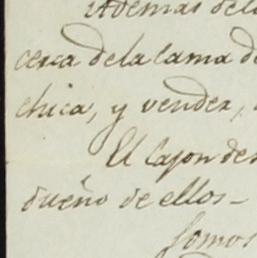 Ademas de la
cerca de la cama de
chica, y vender,
El Cajon des
dueño de ellos -
somos